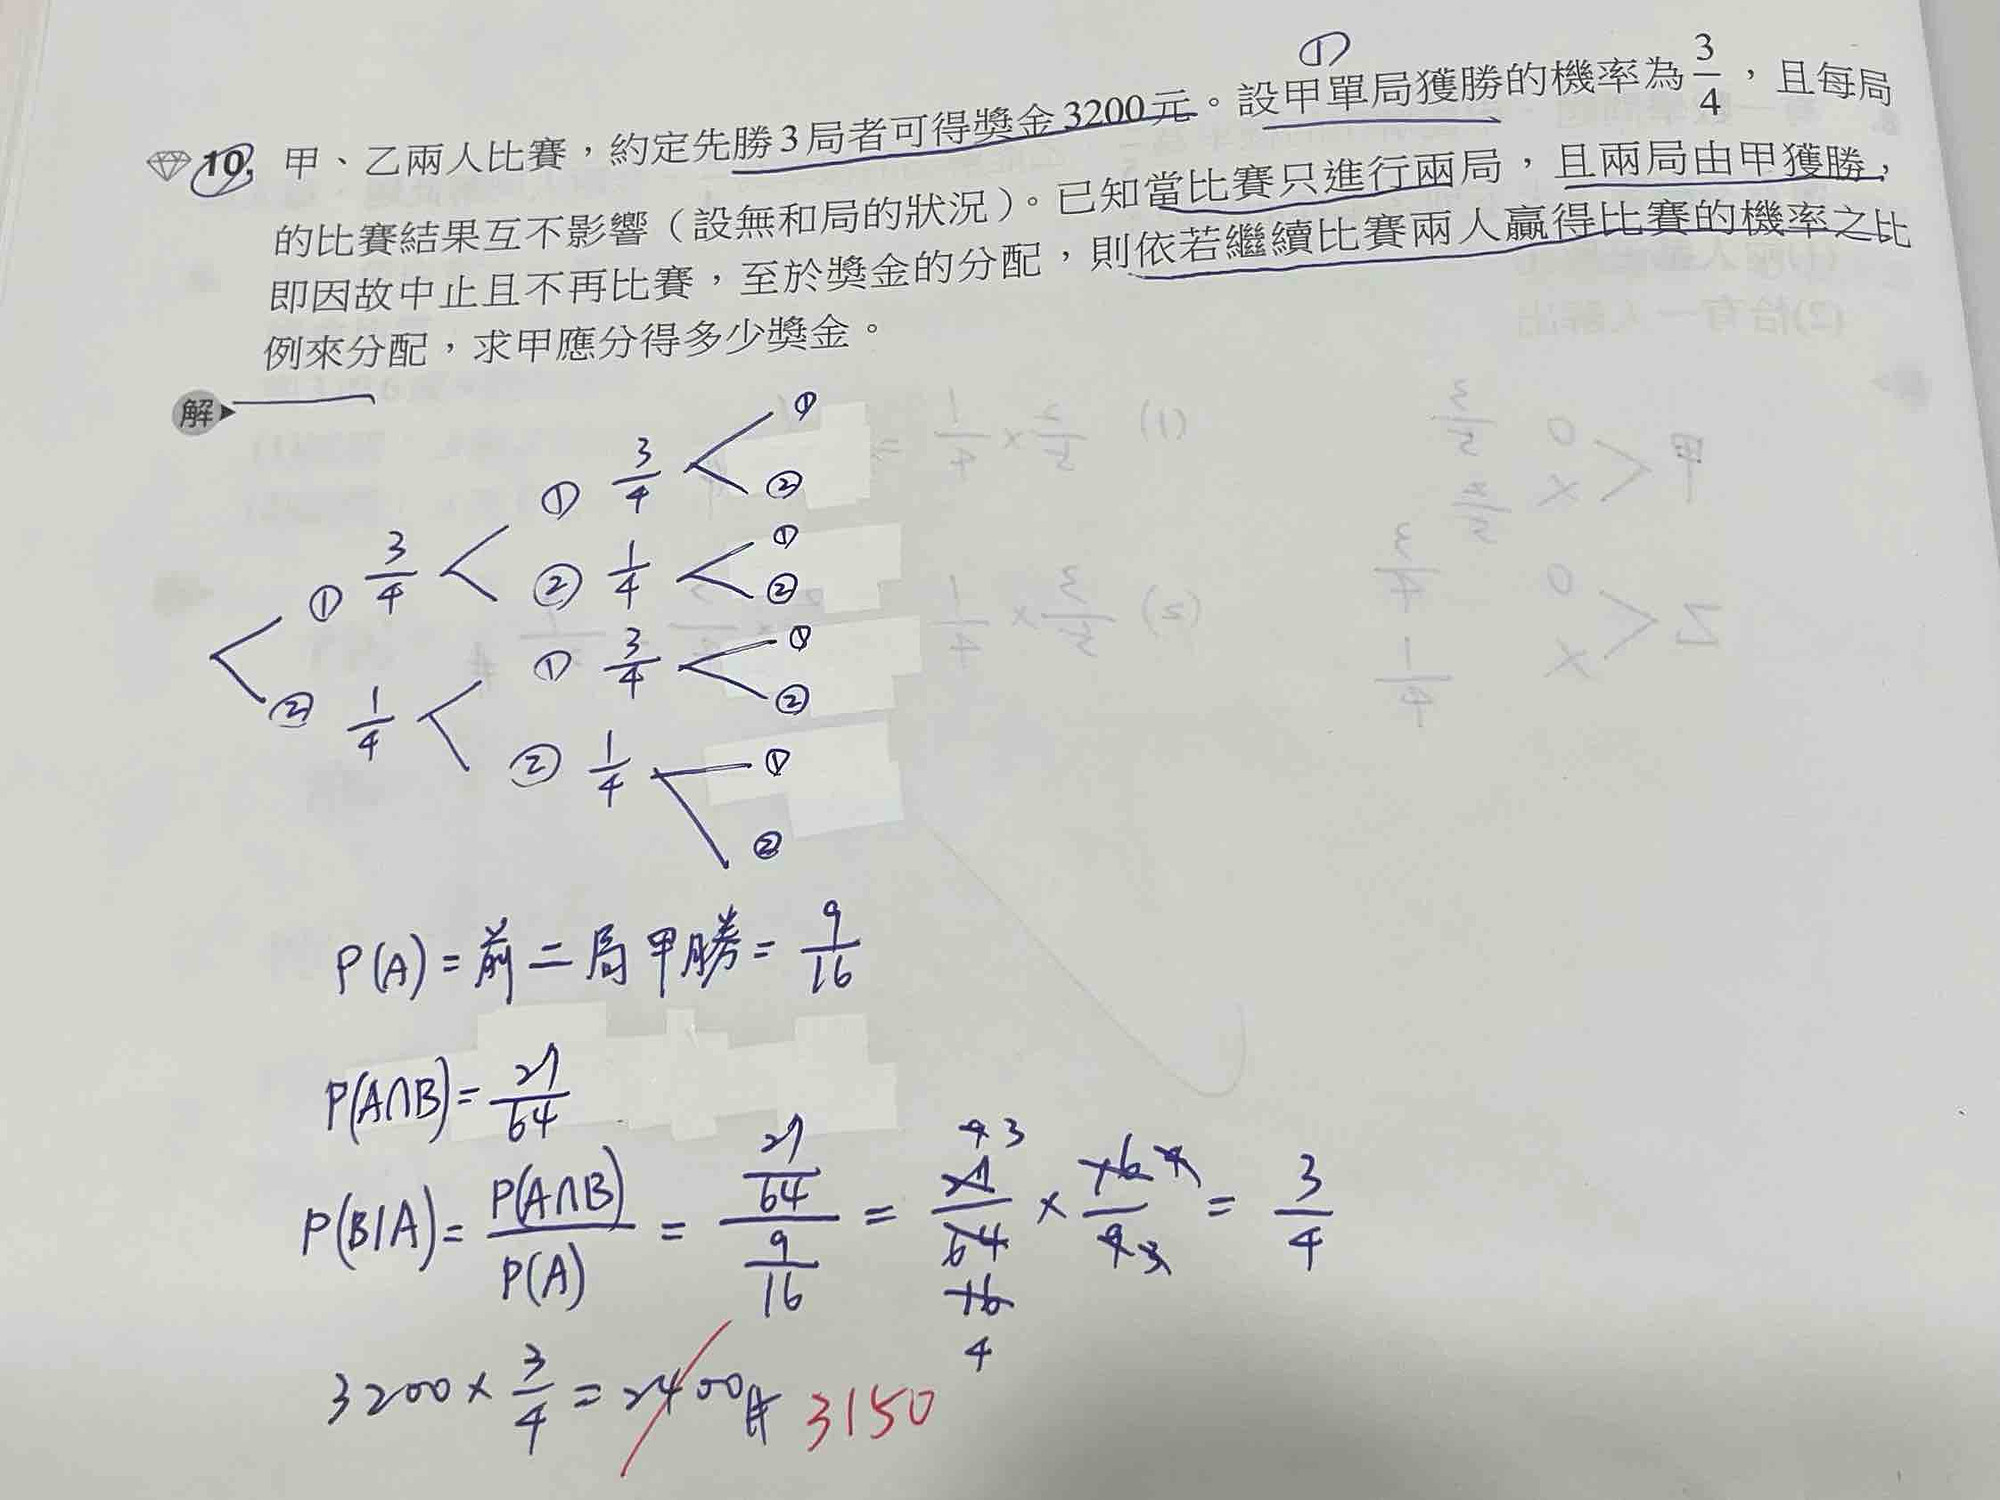 ①
10. 甲、乙兩人比賽，約定先勝3局者可得獎金3200元。設甲單局獲勝的機率為3/4，且每局
的比賽結果互不影響（設無和局的狀況）。已知當比賽只進行兩局，且兩局由甲獲勝，
即因故中止且不再比賽，至於獎金的分配，則依若繼續比賽兩人贏得比賽的機率之比
例來分配，求甲應分得多少獎金。
解
①
① 3/4
②
① 3/4
①
② 1/4
②
① 3/4
①
②
② 1/4
② 1/4
①
②
P(A) = 前二局甲勝 = 9/16
P(A∩B) = 27/64
P(B|A) = P(A∩B)/P(A) = 27/64 / 9/16 = 27/64 × 16/9 = 3/4
3200 × 3/4 = 2400 # 3150